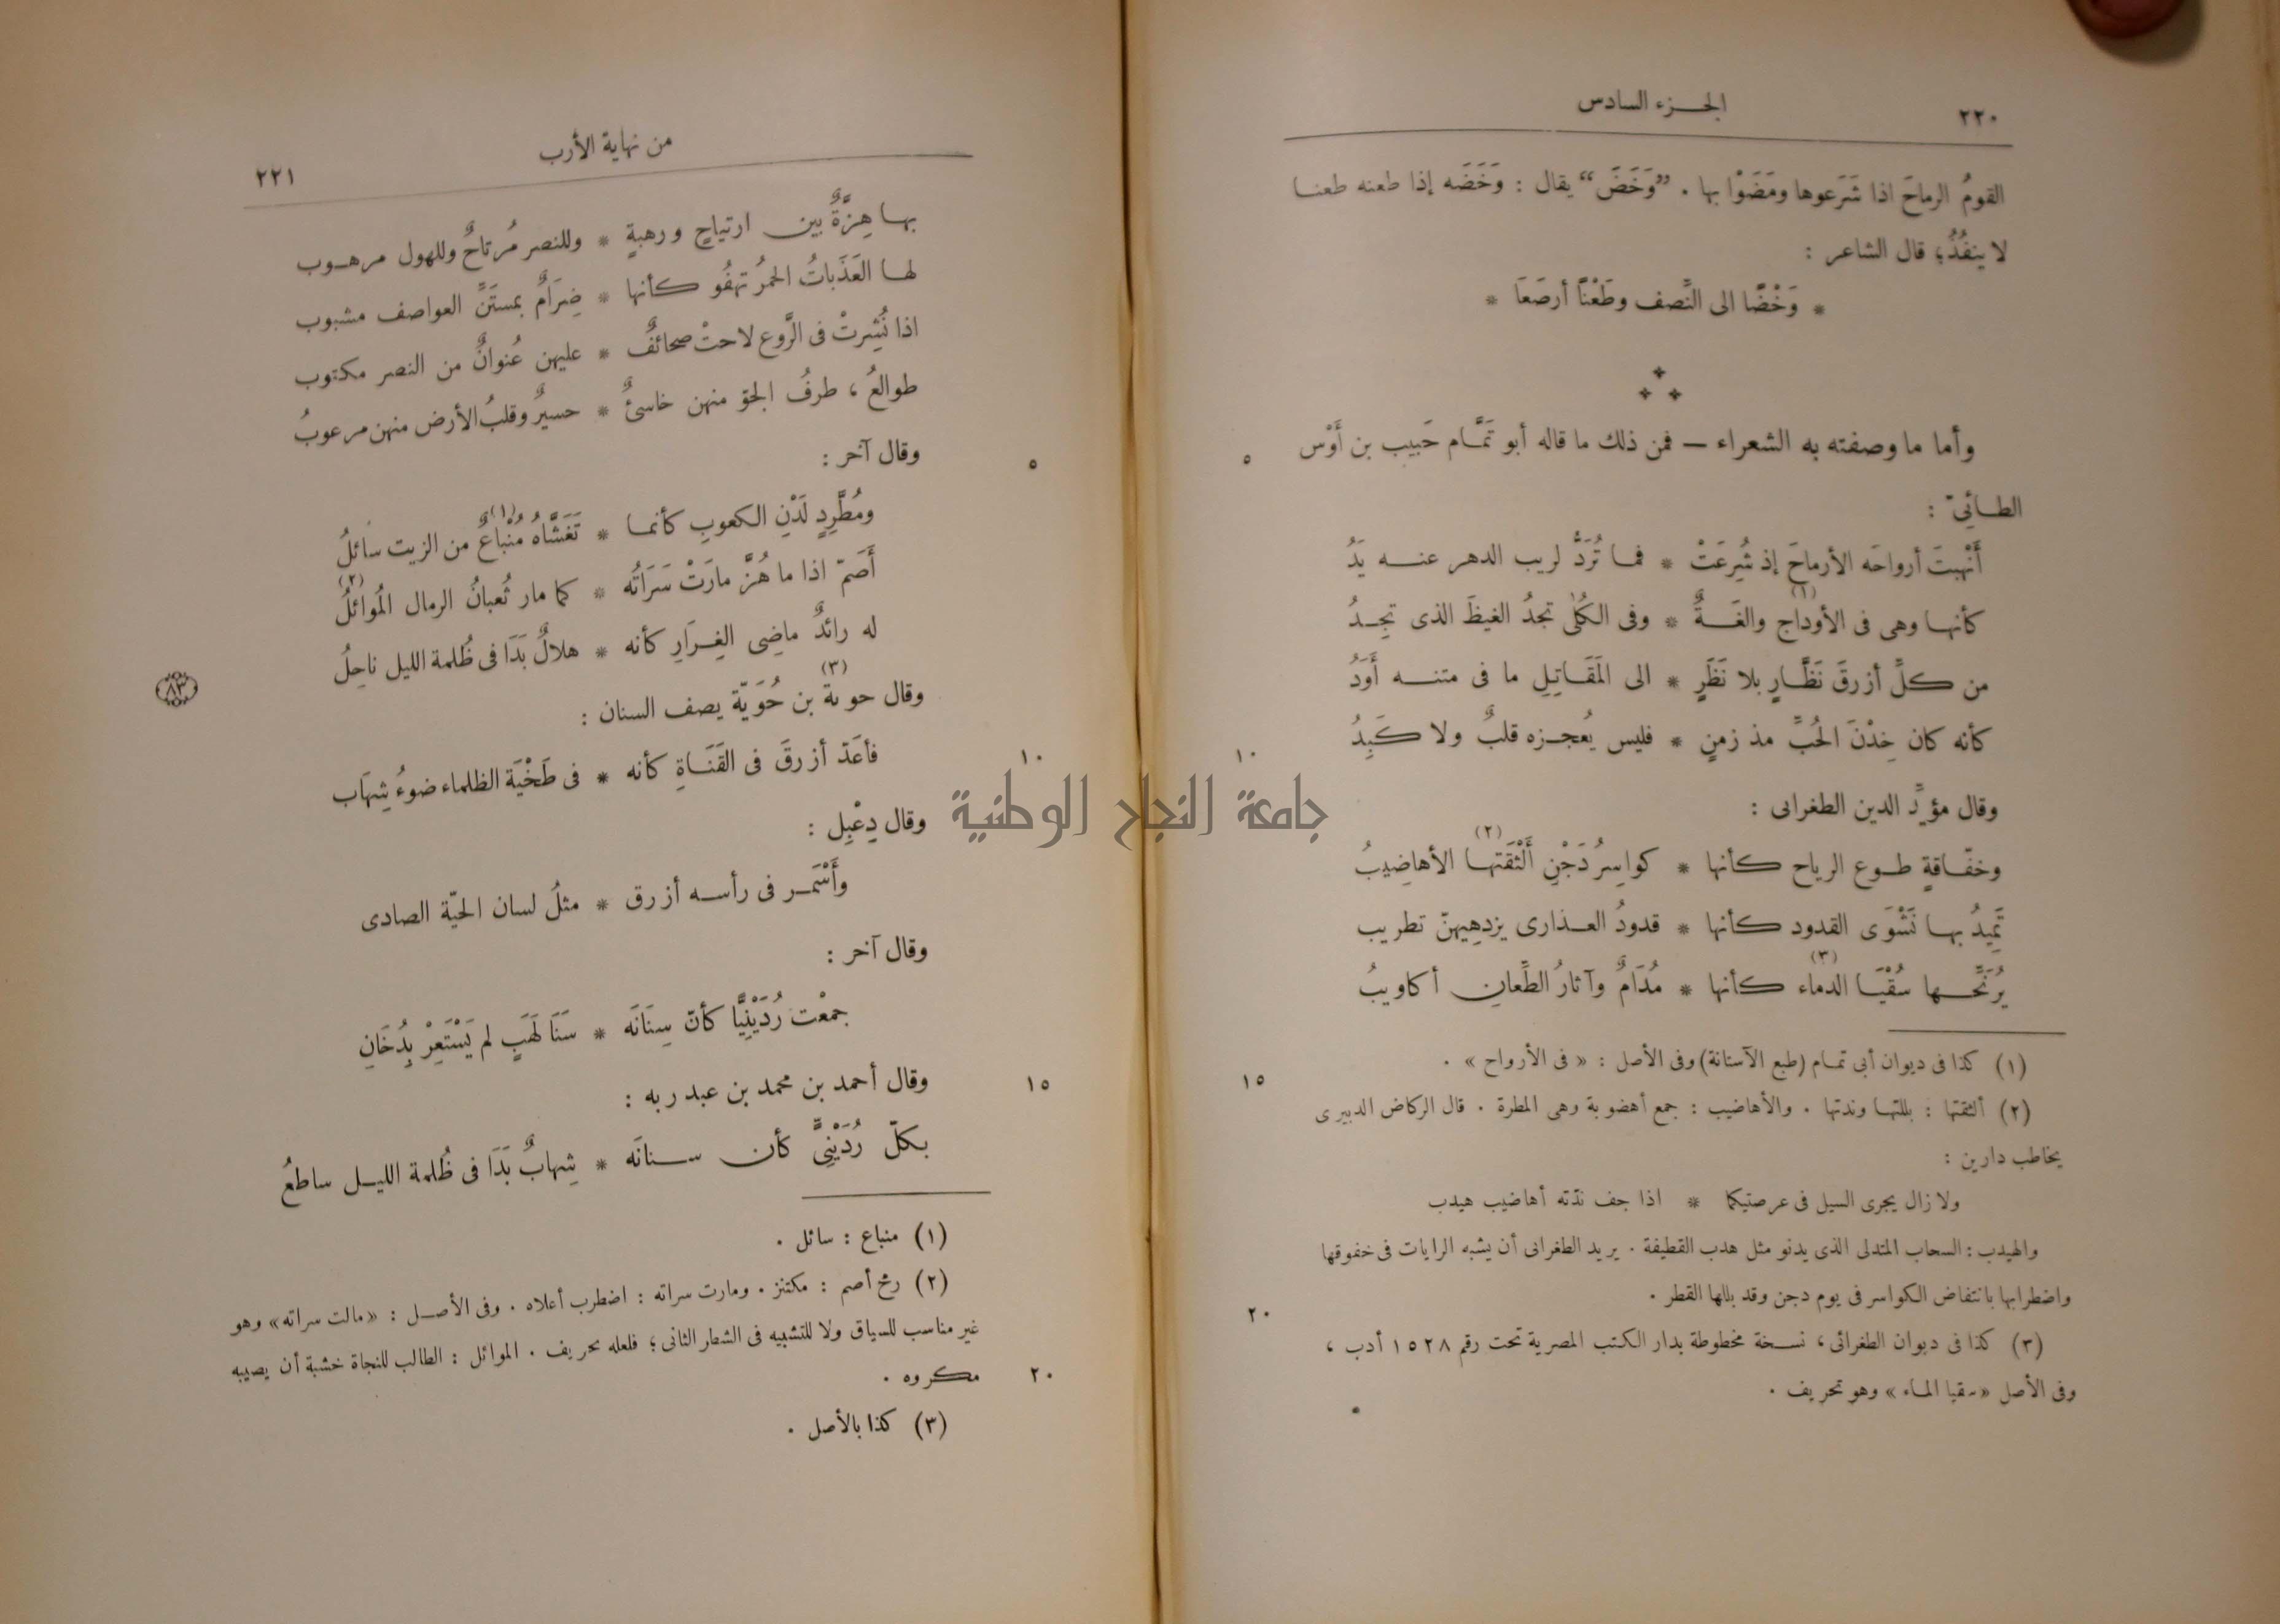 ٢٢٠
الجزء السادس
القومُ الرماحَ اذا شَرَعوها ومَضَوْا بها . ”وَخَضَ“ يقال : وَخَضَه إذا طعنه طعنا
لا ينفُذُ؛ قال الشاعر :
* وَخْضًا الى النِّصف وطَعْنًا أرصَعَا *
وأما ما وصفته به الشعراء — فمن ذلك ما قاله أبو تَمَّام حَبيب بن أَوْس
٥
الطائِىّ :
أَنْهبتَ أرواحَه الأرماحَ إذ شُرِعَتْ * فما تُرَدُّ لريب الدهر عنه يَدُ
كأنها وهى فى الأوداج(١) والغَةٌ * وفى الكُلَى تجدُ الغيظَ الذى تَجِدُ
من كلِّ أزرقَ نَظَّارٍ بلا نَظَرٍ * الى المَقَاتِلِ ما فى متنه أَوَدُ
كأنه كان خِدْنَ الحُبِّ مذ زمنٍ * فليس يُعجزه قلبٌ ولا كَبِدُ
١٠
وقال مؤيِّد الدين الطغرانى :
وخفّاقةٍ طوع الرياح كأنها * كواسِرُ دَجْنٍ أَلْثَقَتْها(٢) الأهاضِيبُ
تَمِيدُ بها نَشْوَى القدود كأنها * قدودُ العذارى يزدهِيهنّ تطريب
يُرَنِّحها سُقْيَا الدماء(٣) كأنها * مُدَامٌ وآثارُ الطِّعانِ أكاويبُ
(١) كذا فى ديوان أبى تمام (طبع الآستانة) وفى الأصل : « فى الأرواح » .
١٥
(٢) ألثقتها : بللتها وندتها . والأهاضيب : جمع أهضوبة وهى المطرة . قال الركاض الدبيرى
يخاطب دارين :
ولا زال يجرى السيل فى عرصتيكما * اذا جف ندّته أهاضيب هيدب
والهيدب : السحاب المتدلى الذى يدنو مثل هدب القطيفة . يريد الطغرانى أن يشبه الرايات فى خفوقها
واضطرابها بانتفاض الكواسر فى يوم دجن وقد بللها القطر .
٢٠
(٣) كذا فى ديوان الطغرائى، نسخة مخطوطة بدار الكتب المصرية تحت رقم ١٥٢٨ أدب ،
وفى الأصل «سقيا الماء» وهو تحريف .
من نهاية الأرب
٢٢١
بها هِزَّةٌ بين ارتياحٍ ورهبةٍ * وللنصر مُرتاحٌ وللهول مرهوب
لها العَذَباتُ الحمرُ تهفُو كأنها * ضِرَامٌ بمستَنِّ العواصف مشبوب
اذا نُشِرتْ فى الرَّوع لاحتْ صحائفٌ * عليهن عُنوانٌ من النصر مكتوب
طوالعُ ، طرفُ الجوّ منهن خاسئٌ * حسيرٌ وقلبُ الأرض منهن مرعوبُ
وقال آخر :
٥
ومُطَّرِدٍ لَدْنِ الكعوبِ كأنما * تَغَشَّاهُ مُنْباعٌ(١) من الزيت سائلُ
أَصَمّ اذا ما هُزَّ مارَتْ سَرَاتُه * كما مار ثُعبانُ الرمال المُوائلُ(٢)
له رائدٌ ماضِى الغِرَارِ كأنه * هلالٌ بَدَا فى ظُلمة الليل ناحِلُ
وقال حوبة(٣) بن حُوَيّة يصف السنان :
٨٣
فأعَدّ أزرقَ فى القَنَاةِ كأنه * فى طَخْيَة الظلماء ضوءُ شِهَاب
١٠
وقال دِعْبِل :
وأَسْمَر فى رأسه أزرق * مثلُ لسان الحيّة الصادى
وقال آخر :
جمعْت رُدَيْنِيًّا كأنّ سِنَانَه * سَنَا لَهَبٍ لم يَسْتَعِرْ بِدُخَانِ
وقال أحمد بن محمد بن عبد ربه :
١٥
بكلّ رُدَيْنِىٍّ كأن سنانَه * شِهابٌ بَدَا فى ظُلمة الليل ساطعُ
(١) منباع : سائل .
(٢) رمح أصم : مكتنز . ومارت سراته : اضطرب أعلاه . وفى الأصل : «مالت سراته» وهو
غير مناسب للسياق ولا للتشبيه فى الشطر الثانى ؛ فلعله تحريف . الموائل : الطالب للنجاة خشية أن يصيبه
مكروه .
٢٠
(٣) كذا بالأصل .
جامعة النجاح الوطنية